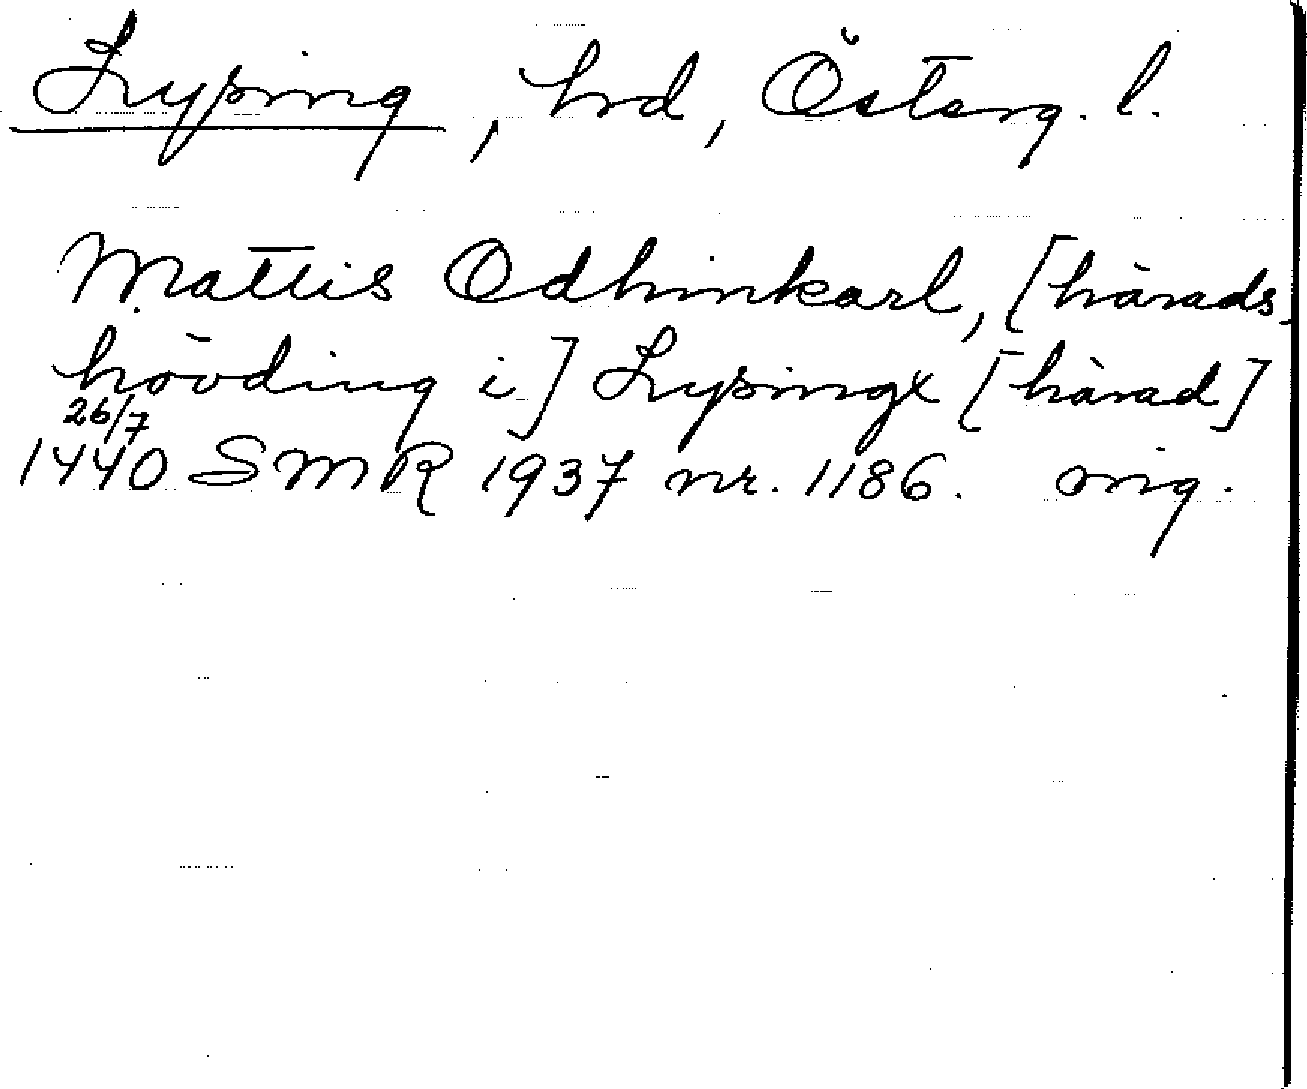 Lysing, hrd, Österg. l.
Mattis Odhinkarl, [härads-
hövding i] Lysingx [härad]
26/7
1440 SMR 1937 nr. 1186. orig.